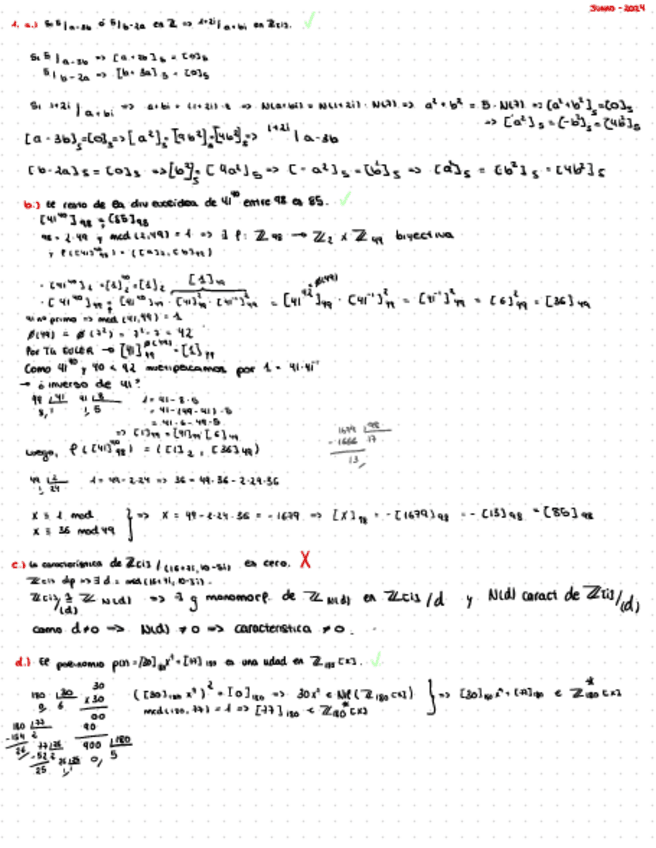 JUNIO - 2024
1. a.) Si 5 | a-3b ó 5 | b-2a en Z => 1+2i | a+bi en Z[i].
Si 5 | a-3b => [a+2b]5 = [0]5
5 | b-2a => [b+3a]5 = [0]5
Si 1+2i | a+bi => a+bi = (1+2i)·z => N(a+bi) = N(1+2i)·N(z) => a²+b² = 5·N(z) => [a²+b²]5 = [0]5
=> [a²]5 = [-b²]5 = [4b²]5
[a-3b]5 = [0]5 => [a²]5 = [9b²]5 = [4b²]5 => 1+2i | a-3b
[b-2a]5 = [0]5 => [b²]5 = [4a²]5 => [-a²]5 = [b²]5 => [a²]5 = [b²]5 = [4b²]5
b.) El resto de la div euclídea de 41⁴⁰ entre 98 es 85.
[41⁴⁰]98 = [85]98
98 = 2·49 y mcd(2,49) = 1 => ∃ f: Z98 → Z2 x Z49 biyectiva
· [41⁴⁰]2 = [1]2⁴⁰ = [1]2
[1]49
· [41⁴⁰]49 = [41⁴⁰]49 · [41]²49 · [41⁻¹]²49 = [41⁴²]49 · [41⁻¹]²49 = [41⁻¹]²49 = [6]²49 = [36]49
41 es primo => mcd(41,49) = 1
φ(49) = φ(7²) = 7²-7 = 42
Por Tª EULER → [41]49^φ(49) = [1]49
Como 41⁴⁰ y 40 < 42 multiplicamos por 1 = 41·41⁻¹
→ ¿inverso de 41?
49 41 41 8 1 = 41-8·5
8, 1 1, 5 = 41-(49-41)·5
= 41·6-49·5
=> [1]49 = [41]49 [6]49
1679 98
-1666 17
13,
Luego, f([41⁴⁰]98) = ([1]2, [36]49)
49 2 1 = 49-2·24 => 36 = 49·36-2·24·36
1, 24
x ≡ 1 mod
x ≡ 36 mod 49
=> x = 49-2·24·36 = -1679 => [x]98 = -[1679]98 = -[13]98 = [85]98
c.) La característica de Z[i]/(16+7i, 10-5i) es cero. X
Z[i] dp => ∃ d = mcd(16+7i, 10-5i).
=> ∃ g monomorf. de Z N(d) en Z[i]/d y N(d) caract de Z[i]/(d)
como d≠0 => N(d) ≠ 0 => característica ≠ 0.
d.) El polinomio p(x) = [30]180 x⁴ + [77]180 es una udad en Z180[x].
180 30 30
0, 6 x 30
00
90
900 180
0, 5
180 77
-154 2
26 77 26
-52 2
25 26 25
1, 1
mcd(180, 77) = 1 => [77]180 ∈ Z180*[x]